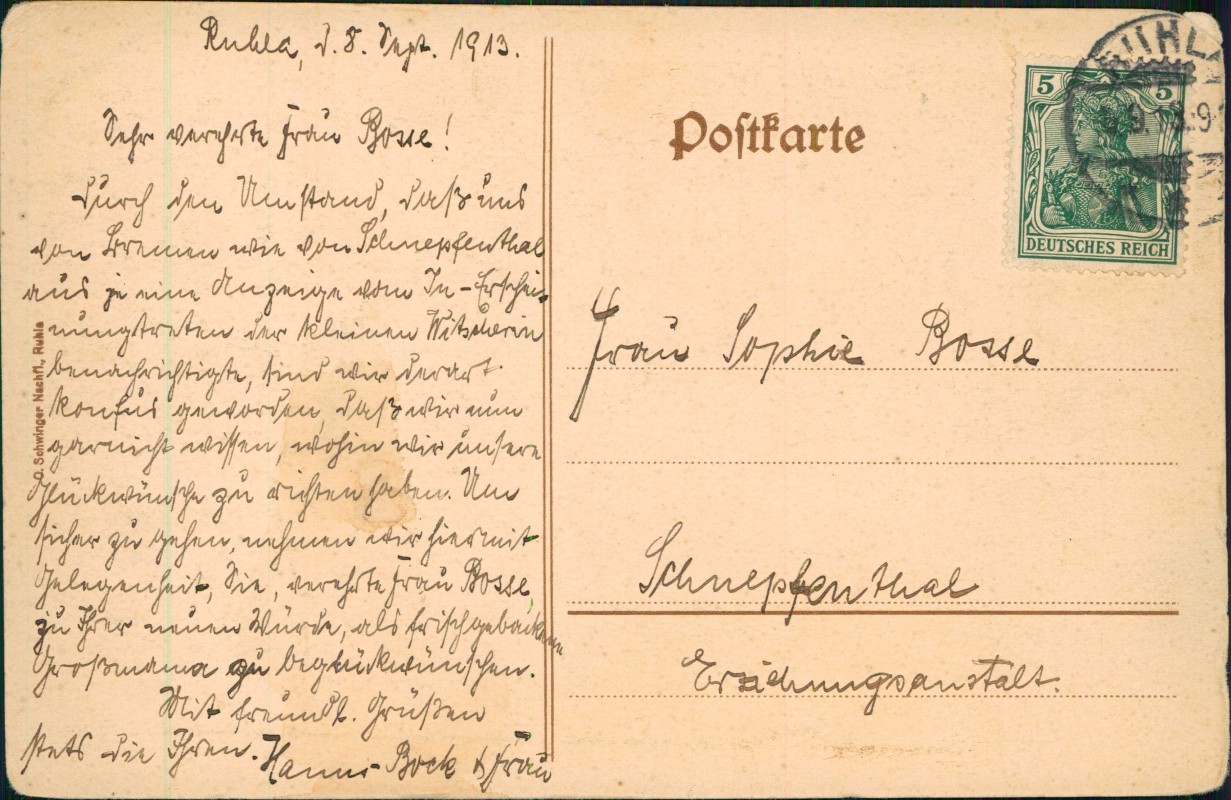 Ruhla, d. 8. Sept. 1913.
Sehr verehrte Frau Bosse!
Durch den Umstand, daß uns
von Bremen wie von Schnepfenthal
aus je eine Anzeige vom In-Erschei-
nungtreten der kleinen
benachrichtigte, sind wir derart
konfus geworden, daß wir nun
garnicht wissen, wohin wir unsere
Glückwünsche zu richten haben. Um
sicher zu gehen, nehmen wir hiermit
Gelegenheit, Sie, verehrte Frau Bosse,
zu Ihrer neuen Würde, als frischgebackene
Großmama zu beglückwünschen.
Mit freundl. Grüßen
stets die Ihren.
Hanns Bock & Frau
O. Schwinger Nachfl., Ruhla
Postkarte
5 5
DEUTSCHES REICH
RUHLA
Frau Sophie Bosse
Schnepfenthal
Erziehungsanstalt.